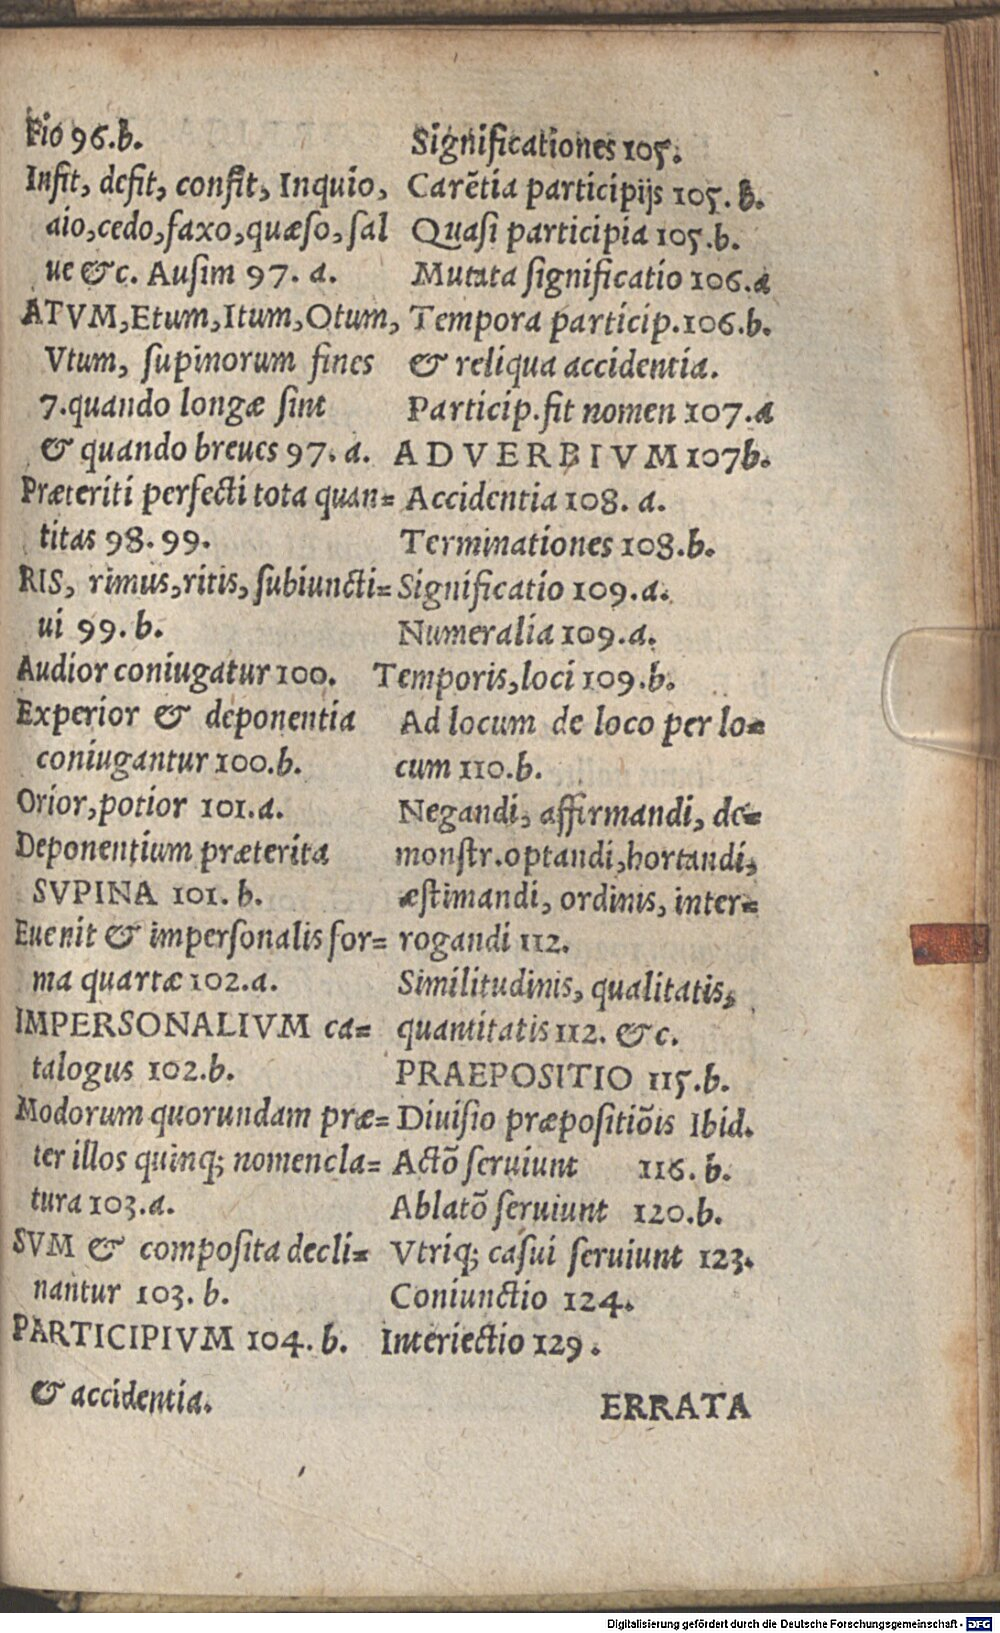 Fio 96.b.
Infit, defit, confit, Inquio,
aio,cedo,faxo,quæso, sal
ue &c. Ausim 97. a.
ATVM,Etum,Itum,Otum,
Vtum, supinorum fines
7.quando longæ sint
& quando breues 97. a.
Præteriti perfecti tota quan=
titas 98. 99.
RIS, rimus,ritis, subiuncti=
ui 99. b.
Audior coniugatur 100.
Experior & deponentia
coniugantur 100.b.
Orior,potior 101.a.
Deponentium præterita
SVPINA 101. b.
Euenit & impersonalis for=
ma quartæ 102.a.
IMPERSONALIVM ca=
talogus 102.b.
Modorum quorundam præ=
ter illos quinq; nomencla=
tura 103.a.
SVM & composita decli=
nantur 103. b.
PARTICIPIVM 104. b.
& accidentia.
Significationes 105.
Carētia participijs 105. b.
Quasi participia 105.b.
Mutata significatio 106.a
Tempora particip.106.b.
& reliqua accidentia.
Particip.fit nomen 107.a
ADVERBIVM 107b.
Accidentia 108. a.
Terminationes 108.b.
Significatio 109.a.
Numeralia 109.a.
Temporis,loci 109.b.
Ad locum de loco per lo=
cum 110.b.
Negandi, affirmandi, de=
monstr.optandi,hortandi,
æstimandi, ordinis, inter=
rogandi 112.
Similitudinis, qualitatis,
quantitatis 112. &c.
PRAEPOSITIO 115.b.
Diuisio præpositiōis Ibid.
Actō seruiunt 116. b.
Ablatō seruiunt 120.b.
Vtriq; casui seruiunt 123.
Coniunctio 124.
Interiectio 129.
ERRATA
Digitalisierung gefördert durch die Deutsche Forschungsgemeinschaft - DFG